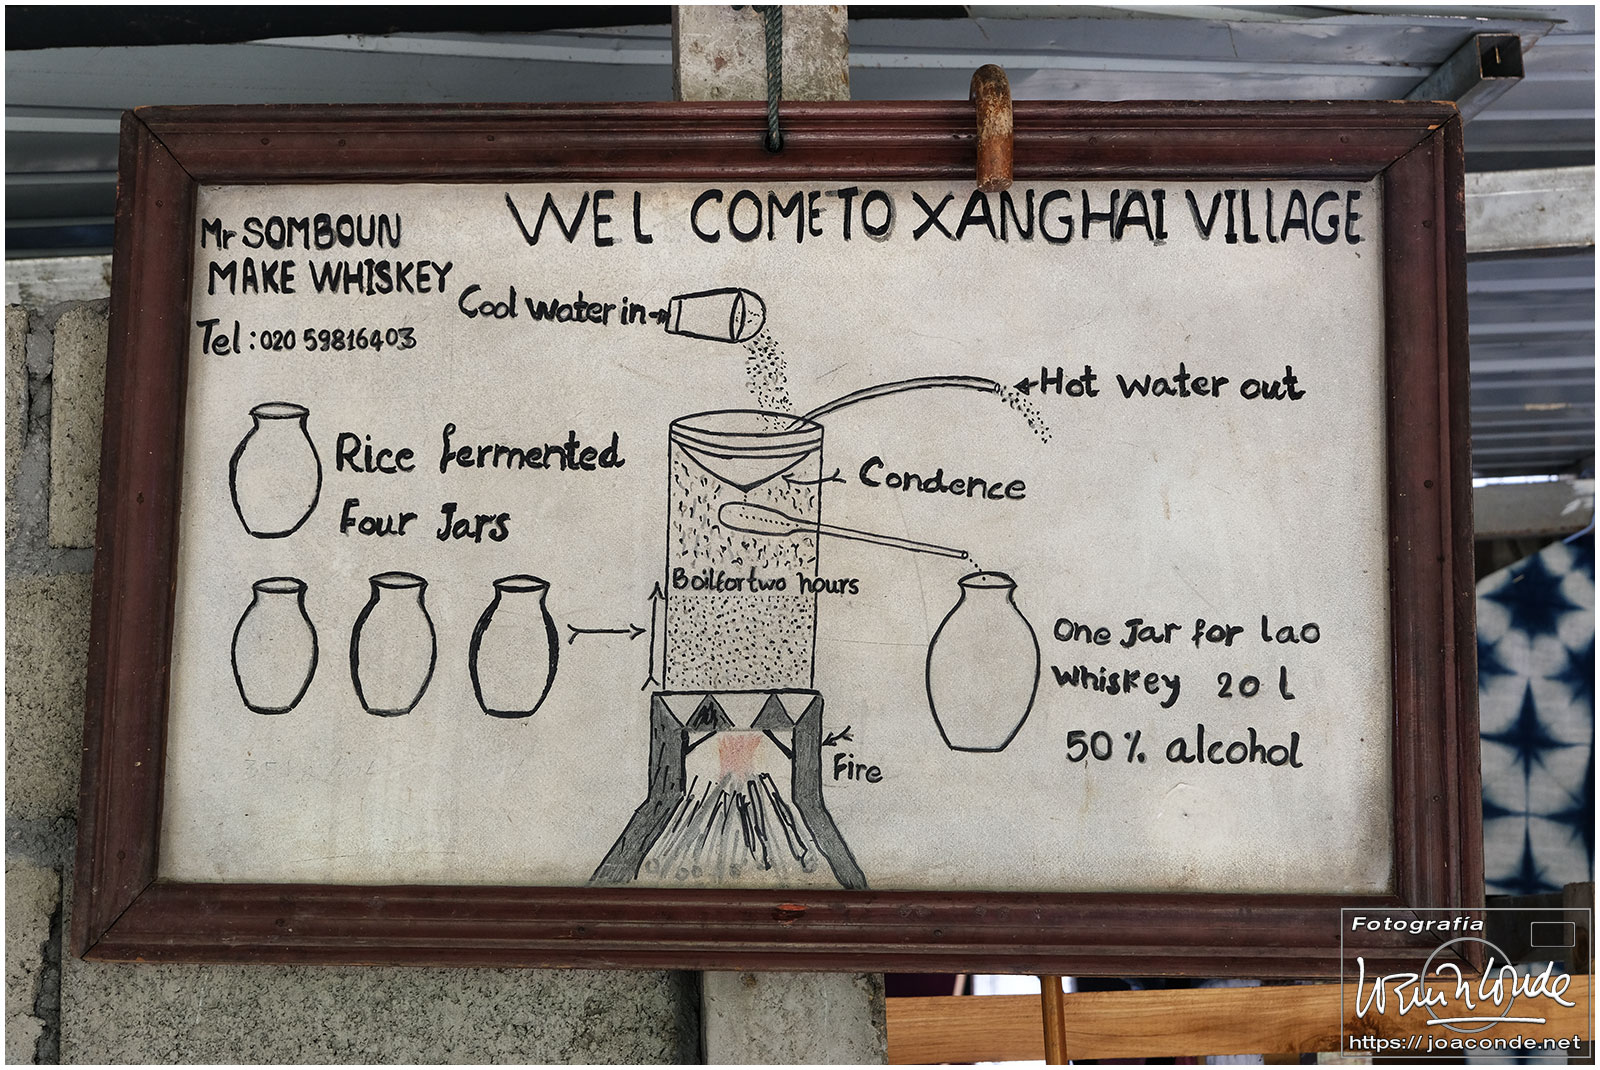 WEL COMETO XANGHAI VILLAGE
Mr SOMBOUN
MAKE WHISKEY
Tel : 020 59816403
Cool water in
Hot water out
Rice fermented
Four Jars
Condence
Boil for two hours
One Jar for lao
whiskey 20 l
50 % alcohol
Fire
Fotografía
https://joaconde.net